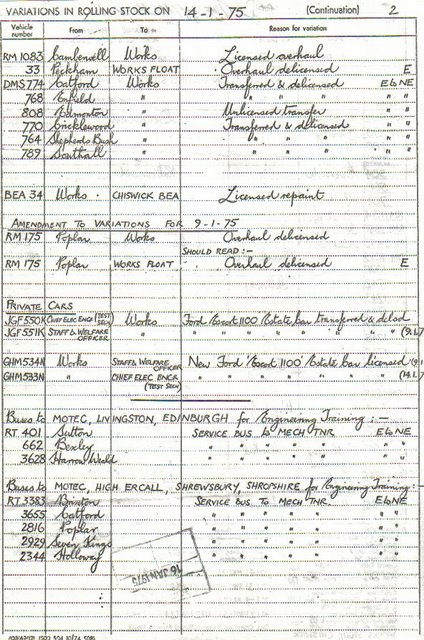 VARIATIONS IN ROLLING STOCK ON 14-1-75 (Continuation) 2
Vehicle number From To Reason for variation
RM 1083 Camberwell Works Licensed overhaul
33 Peckham WORKS FLOAT Overhaul delicensed E
DMS 774 Catford Works Transferred & delicensed E to NE
768 Enfield " " " " "
808 Edmonton " Unlicensed transfer " "
770 Cricklewood " Transferred & delicensed " "
764 Shepherds Bush " " " " " "
789 Southall " " " " " "
BEA 34 Works CHISWICK BEA Licensed repaint
AMENDMENT TO VARIATIONS FOR 9-1-75
RM 175 Poplar Works Overhaul delicensed
SHOULD READ :-
RM 175 Poplar WORKS FLOAT Overhaul delicensed E
PRIVATE CARS
JGF 550K CHIEF ELEC ENGR (TEST SECN) Works Ford Escort 1100 Estate car transferred & delsd
JGF 551K STAFF & WELFARE OFFICER " " " " " " " " (9.1.7
GHM 534N Works STAFF & WELFARE OFFICER New Ford 'Escort 1100' Estate car licensed (9.1
GHM 533N " CHIEF ELEC ENGR (TEST SECN) " " " " " " (14.1.7
Buses to MOTEC, LIVINGSTON, EDINBURGH for Engineering Training :-
RT 401 Sutton SERVICE BUS to MECH TNR E to NE
662 Bexley " " " " " "
3628 Harrow Weald " " " " " "
Buses to MOTEC, HIGH ERCALL, SHREWSBURY, SHROPSHIRE for Engineering Training :-
RT 3383 Brixton SERVICE BUS TO MECH TNR E to NE
3655 Catford " " " " " "
2816 Poplar " " " " " "
2929 Seven Kings " " " " " "
2344 Holloway " " " " " "
16 JAN 1975